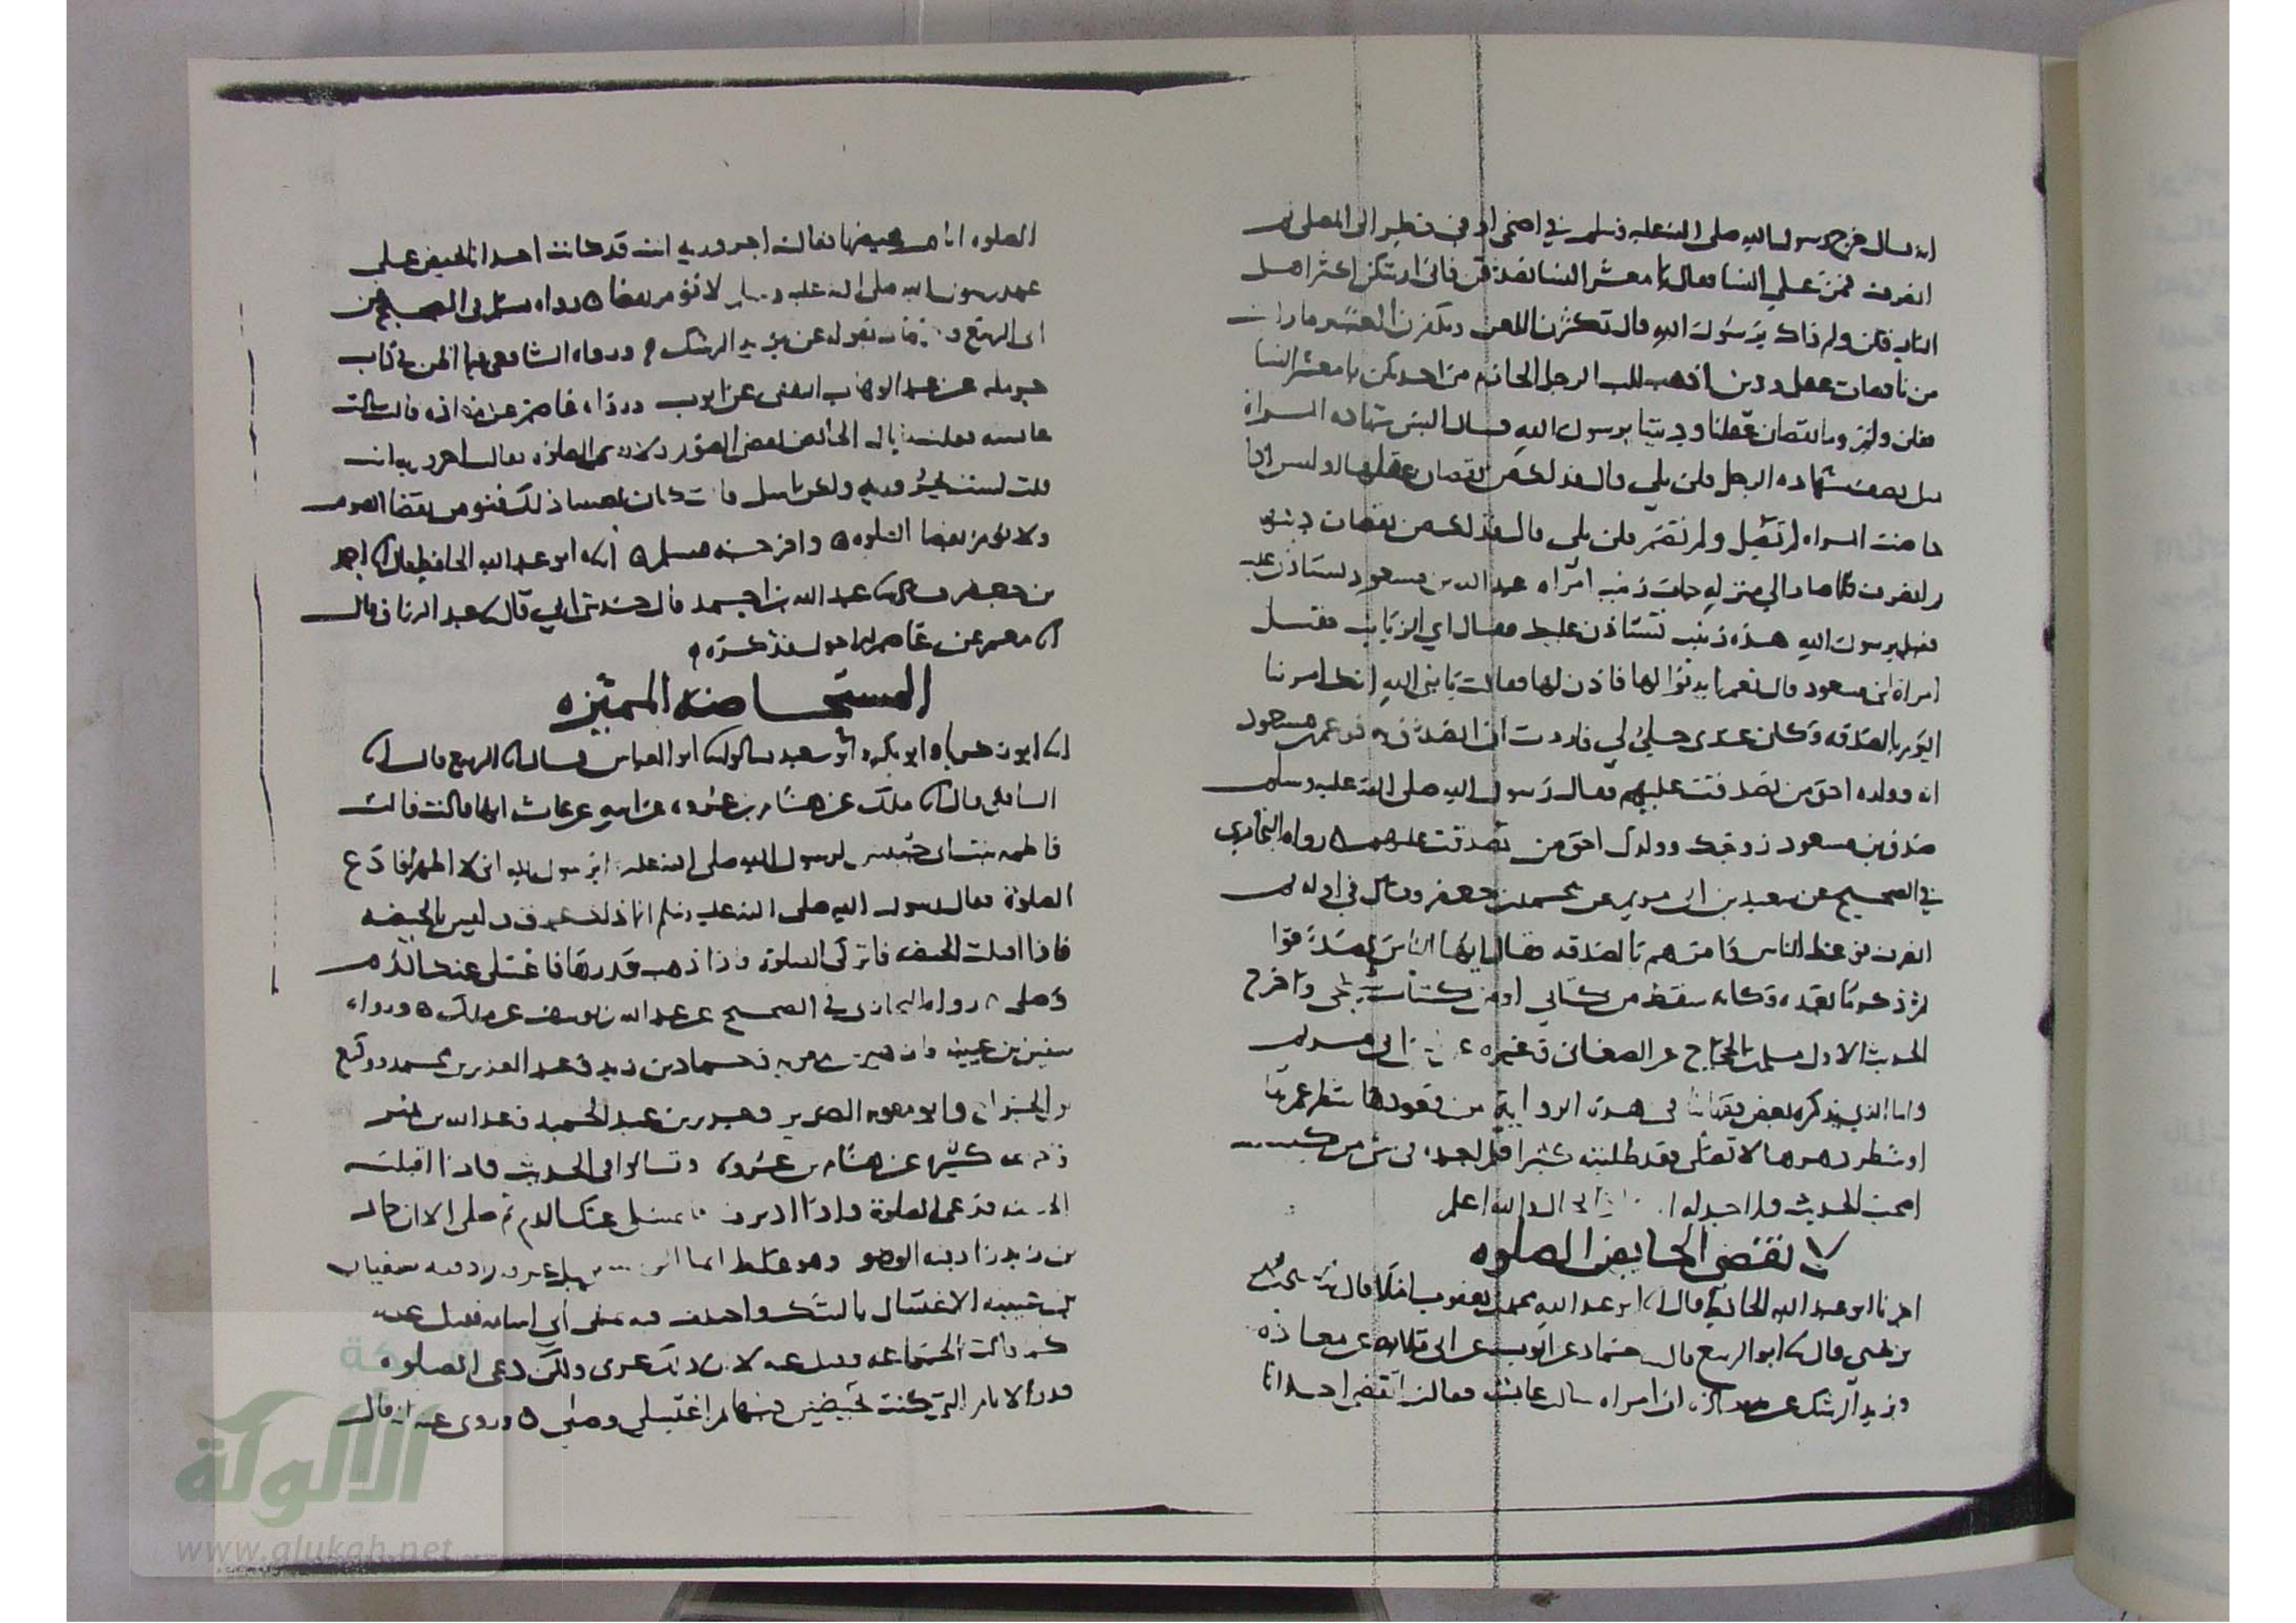 انه قال خرج رسول الله صلى الله عليه وسلم في اضحى او في فطر الى المصلى ثم
انصرف فمر على النسا فقال يا معشر النسا تصدقن فاني اريتكن اكثر اهل
النار فقلن ولم ذاك يرسول الله قال تكثرن اللعن وتكفرن العشير ما رايت
من ناقصات عقل ودين اذهب للب الرجل الحازم من احديكن يا معشر النسا
فقلن وما نقصان عقلنا وديننا يرسول الله قال اليس شهاده المراة
مثل نصف شهاده الرجل قلن بلى قال فذلك من نقصان عقلها او ليس اذا
حاضت المراه لم تصل ولم تصم قلن بلى قال فذلك من نقصان دينها
ثم انصرف فلما صار الى منزله جات زينب امراه عبد الله بن مسعود تستاذن عليه
فقيل يرسول الله هذه زينب تستاذن عليك فقال اي الزيانب فقيل
امراة ابن مسعود قال نعم ايذنوا لها فاذن لها فقالت يا نبي الله انك امرتنا
اليوم بالصدقه وكان عندي حلي لي فاردت ان اتصدق به فزعم ابن مسعود
انه وولده احق من تصدقت عليهم فقال رسول الله صلى الله عليه وسلم
صدق بن مسعود زوجك وولدك احق من تصدقت عليهم رواه البخاري
في الصحيح عن سعيد بن ابي مريم عن محمد بن جعفر وقال في اوله ثم
انصرف فوعظ الناس وامرهم بالصدقه فقال ايها الناس تصدقوا
ثم ذكر ما بعده وكانه سقط من كتابي او من كتاب شيخي واخرج
الحديث الاول مسلم بن الحجاج عن الصغاني وغيره عن ابن ابي مريم
واما الذي يذكره بعض فقهائنا في هذه الروايه من قعودها شطر عمرها
او شطر دهرها لا تصلي فقد طلبته كثيرا فلم اجده في شي من كتب
اصحب الحديث ولم اجد له والله اعلم
لا تقضي الحايض الصلوه
اخبرنا ابو عبد الله الحافظ قال ابو عبد الله محمد بن يعقوب املا قال يحيى بن محمد
بن يحيى قال ابو الربيع قال حماد عن ايوب عن ابي قلابه عن معاذه
ويزيد الرشك عن معاذه ان امراه سالت عايشه فقالت اتقضي احدانا
الصلوه ايام محيضها فقالت احروريه انت قد كانت احدانا تحيض على
عهد رسول الله صلى الله عليه وسلم لا تؤمر بقضا رواه مسلم في الصحيح عن
ابي الربيع عن يزيد الرشك ورواه الشافعي فيما اظن في كتاب
حرمله عن عبد الوهاب الثقفي عن ايوب ورواه عاصم عن معاذه قالت سالت
عايشه فقلت ما بال الحائض تقضي الصوم ولا تقضي الصلوة فقالت احروريه انت
قلت لست بحروريه ولكني اسل قالت كان يصيبنا ذلك فنؤمر بقضا الصوم
ولا نؤمر بقضا الصلوه واخرجه مسلم ابو عبد الله الحافظ قال احمد
بن جعفر قال عبد الله بن احمد قال حدثني ابي قال عبد الرزاق قال
معمر عن عاصم الاحول فذكره
المستحاضه المميزه
ابو زكريا وابو بكر وابو سعيد قالوا ابو العباس قال الربيع قال
الشافعي قال ملك عن هشام بن عروه عن ابيه عن عايشه انها قالت قالت
فاطمه بنت ابي حبيش لرسول الله صلى الله عليه يرسول الله اني لا اطهر افادع
الصلوة فقال رسول الله صلى الله عليه وسلم انما ذلك عرق وليس بالحيضه
فاذا اقبلت الحيضه فاتركي الصلوة فاذا ذهب قدرها فاغسلي عنك الدم
وصلي رواه البخاري في الصحيح عن عبد الله بن يوسف عن ملك ورواه
سفين بن عيينه وحماد بن زيد وعبد العزيز بن محمد ووكيع
بن الجراح وابو معويه الضرير وجرير بن عبد الحميد وعبد الله بن نمير
كثيره عن هشام بن عروه وقالوا في الحديث فاذا اقبلت
الحيضه فدعي الصلوة واذا ادبرت فاغسلي عنك الدم ثم صلي الا ان حماد
بن زيد زاد فيه الوضو وهو غلط انما زاد فيه سفيان
بن عيينه الاغتسال بالشك واختلف فيه على ابي اسامه فقيل عنه
كما قالت الجماعه وقيل عنه لا ان ذلك عرق ولكن دعي الصلوه
قدر الايام التي كنت تحيضين فيها ثم اغتسلي وصلي وروي عنه انه قال
شبكة
الالوكة
www.alukah.net